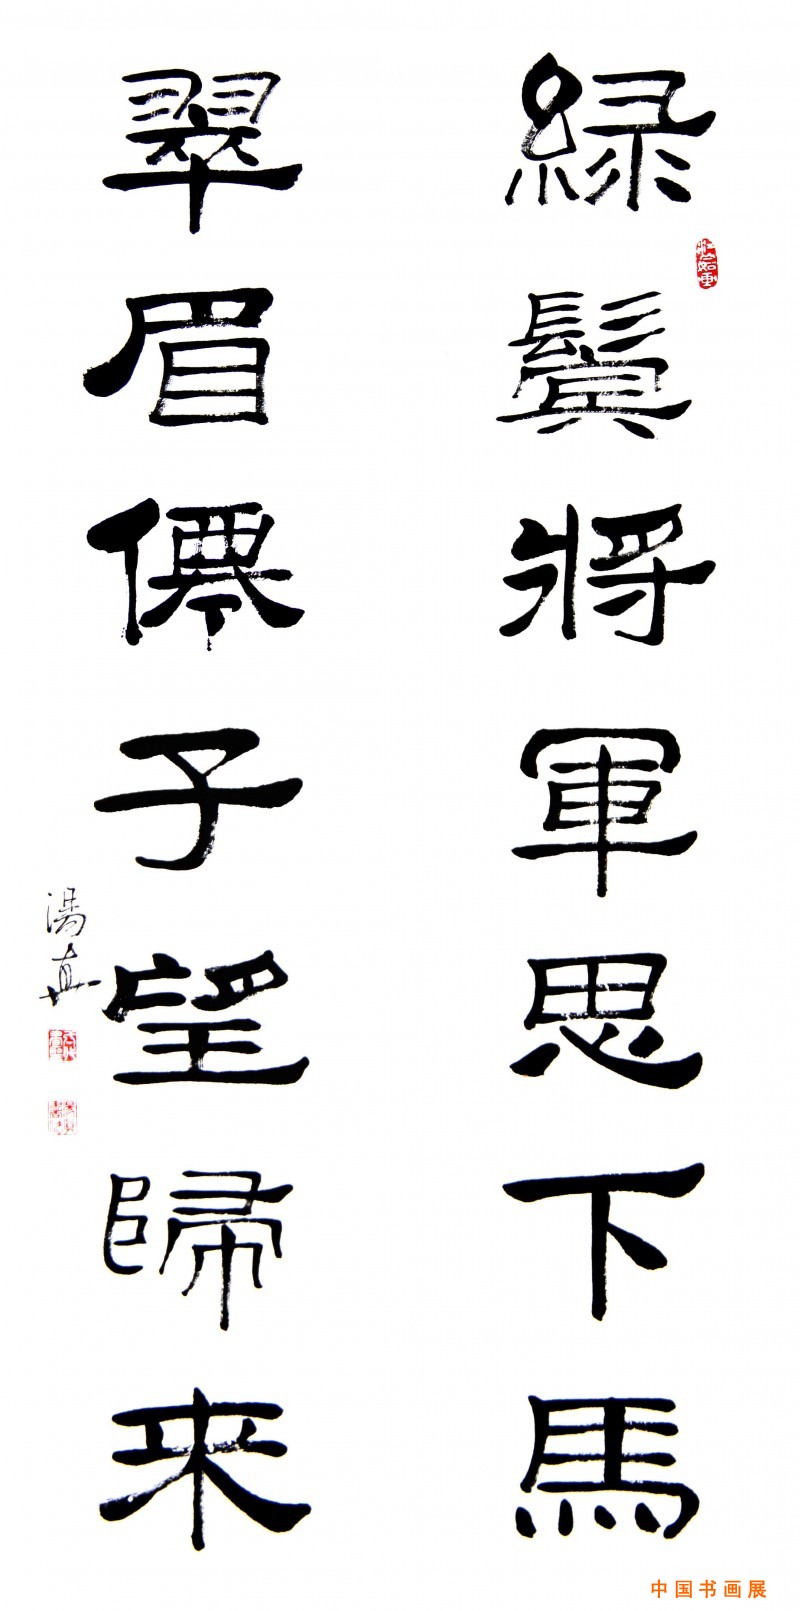 綠鬢將軍思下馬
翠眉僊子望歸来
湯真
中国书画展